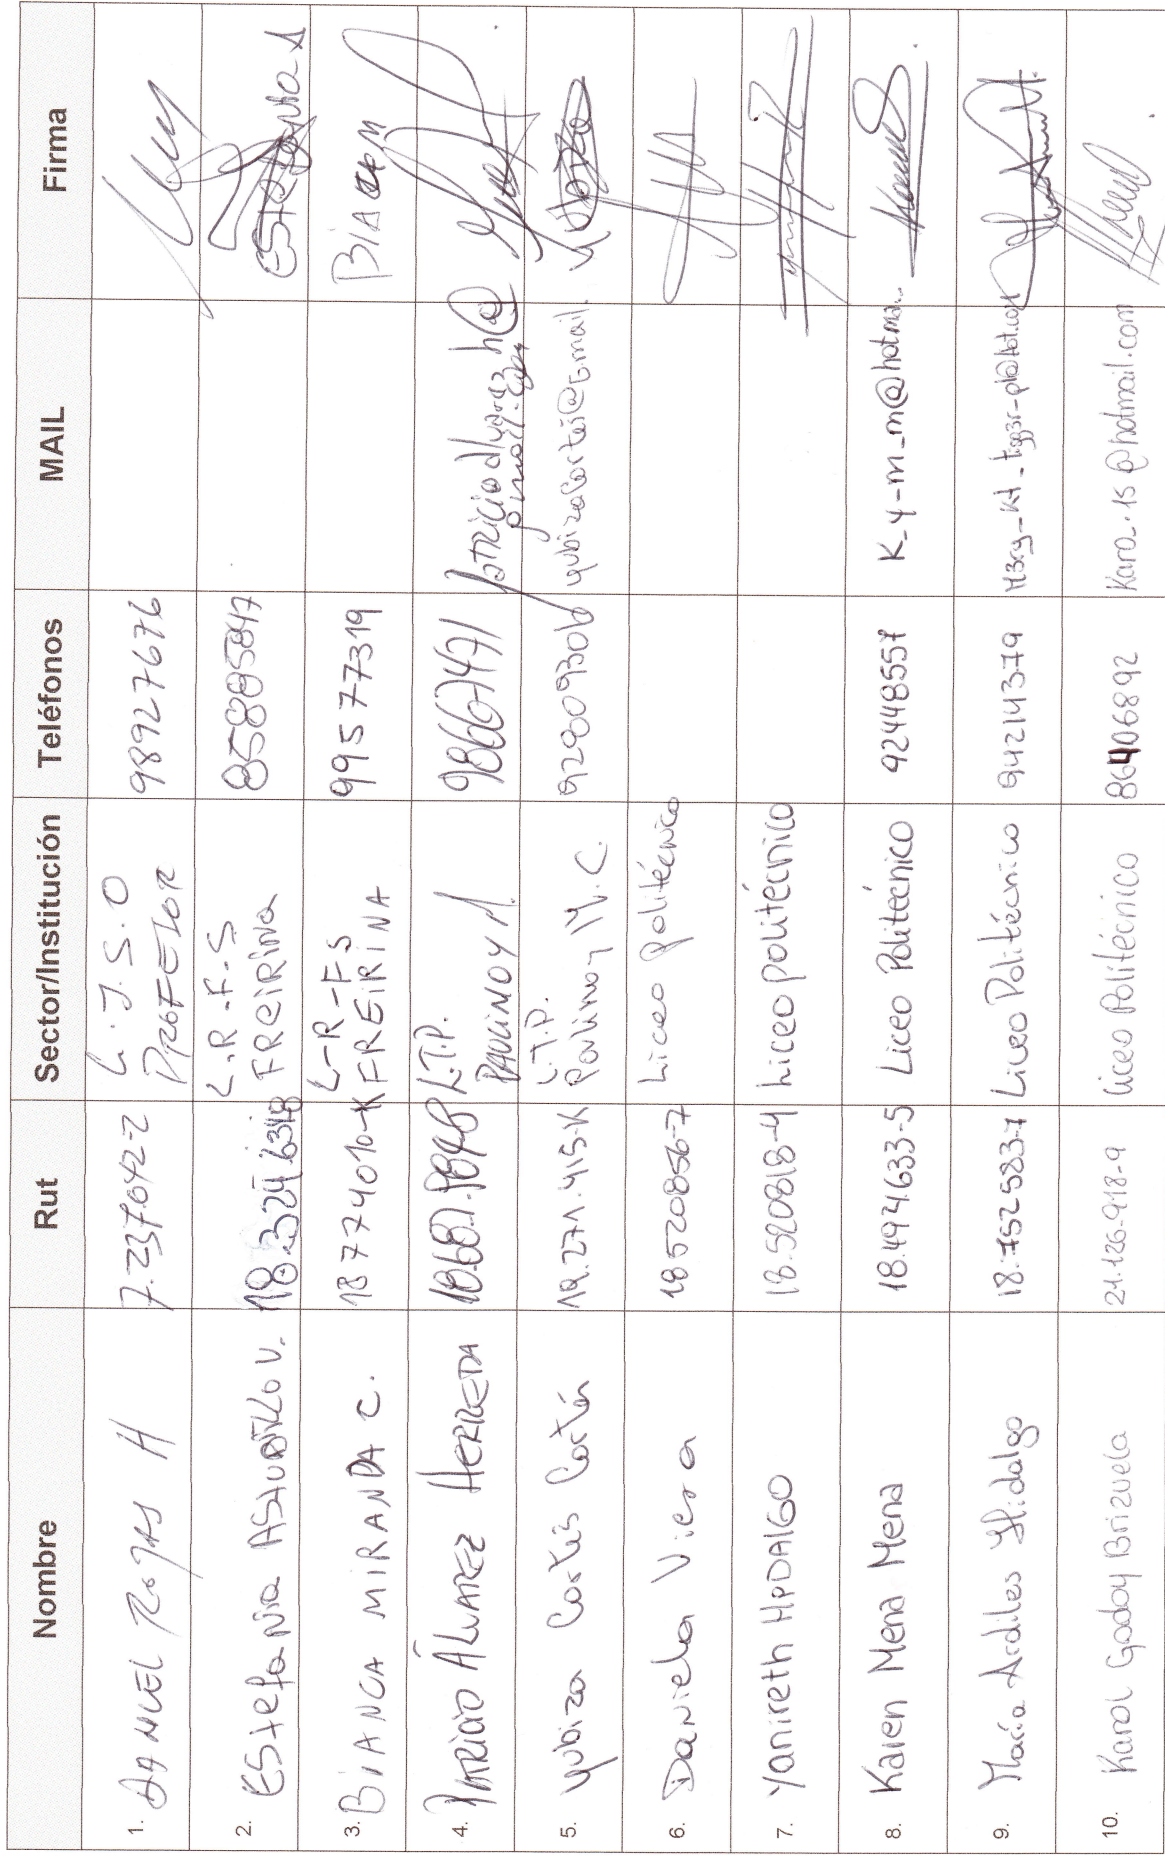 Nombre Rut Sector/Institución Teléfonos MAIL Firma
1. DANIEL ROJAS H 7.237.042-2 L.J.S.O PROFESOR 98927676
2. EStefania AStudillo V. 18.324.634-8 L.R.F.S FREIRINA 85885847
3. BiANCA MIRANDA C. 18774010-K L-R-F-S FREIRINA 99577319 BiANCA M
4. PATRICIO ÁLVAREZ HERRERA L.T.P. PAULINO Y 98667471
5. Yubiza Cortés Cortés 19.271.415-K L.T.P. Paulino y M.C. 92809306 yubizacortes@Gmail.
6. Daniela Viera 18520856-7 Liceo politécnico
7. Yanireth HIDAlGO 18.520818-4 Liceo politécnico
8. Karen Mena Mena 18.494.633-5 Liceo Politécnico 92448557 K_y-m_m@hotmai..
9. María Ardiles Hidalgo 18.752583-7 Liceo Politécnico 94214379
10. Karol Godoy Brizuela 21.126.918-9 Liceo Politécnico 86406892 Karo_15@hotmail.com